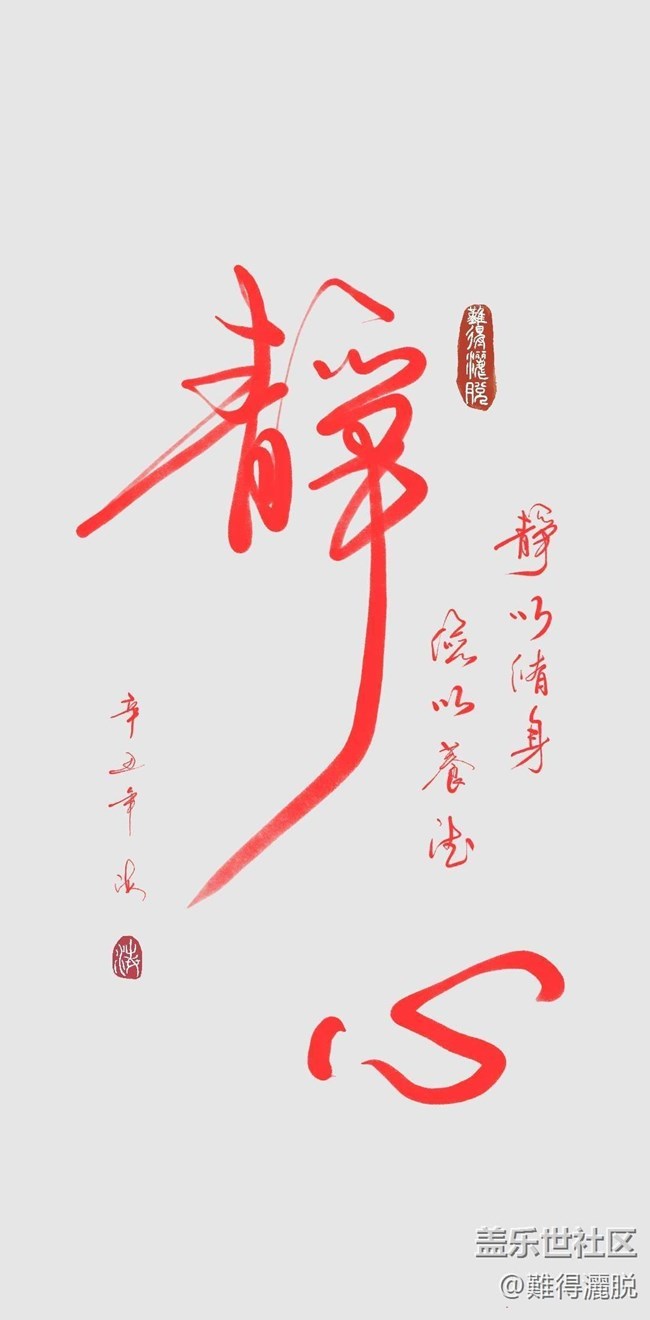 靜心
難得灑脱
靜以脩身
儉以養德
辛丑年 海
海
盖乐世社区
@難得灑脱